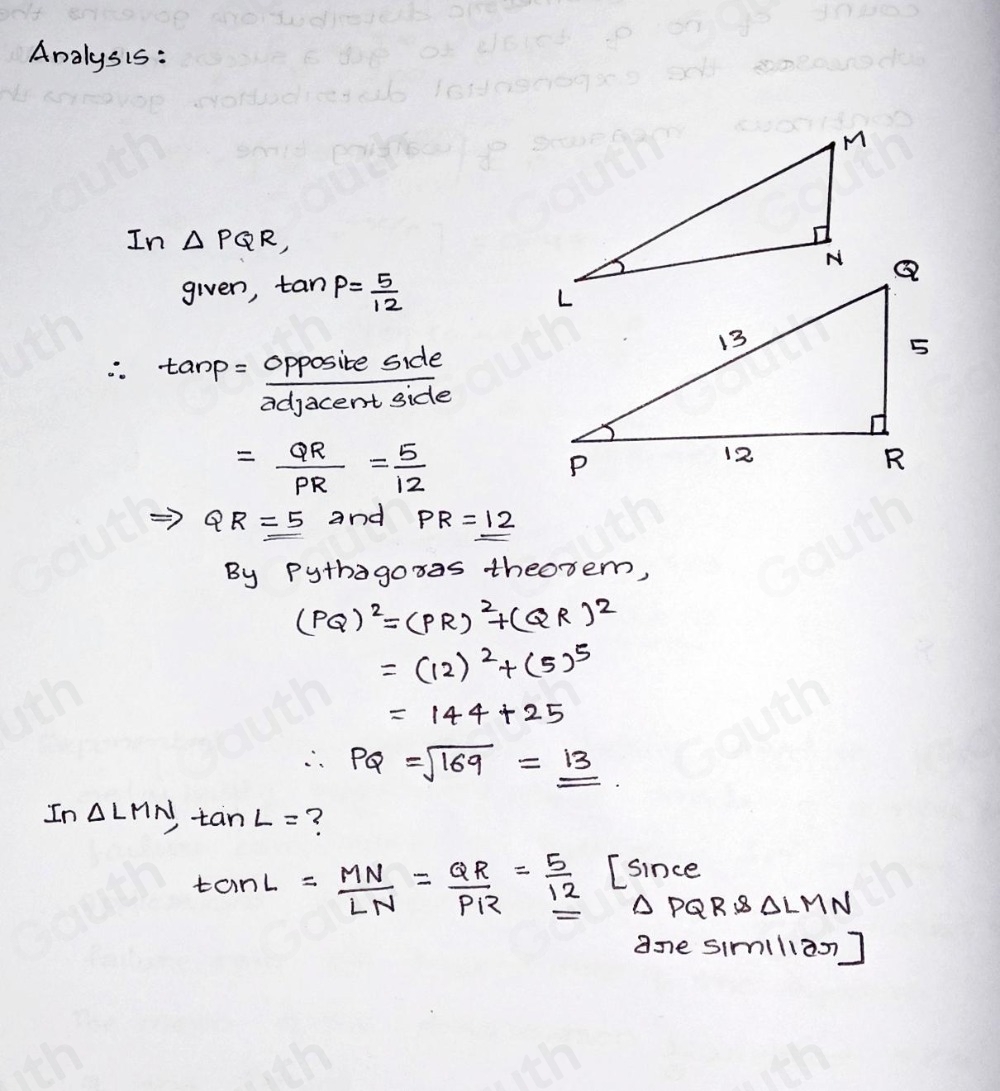 Analysis:
In △ PQR,
given, tan p = 5/12
∴ tanp = opposite side / adjacent side
= QR/PR = 5/12
⇒ QR = 5 and PR = 12
By Pythagoras theorem,
(PQ)² = (PR)² + (QR)²
= (12)² + (5)⁵
= 144 + 25
∴ PQ = √169 = 13.
In △LMN, tan L = ?
tanL = MN/LN = QR/PR = 5/12 [since
△ PQR & △LMN
are similiar]
M
N
L
Q
13
5
P
12
R
Gauth